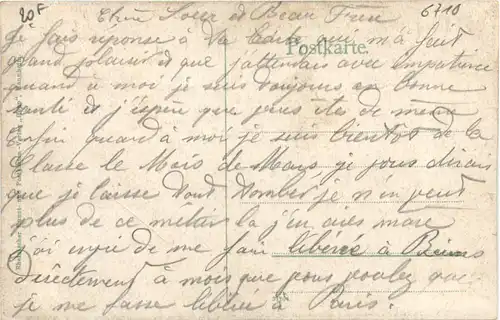 20F
6710
Postkarte.
Cher Soeur et Beau Frere
Je fais reponse à ta carte qui m'a fait
grand plaisir et que j'attendais avec impatience
quand à moi je suis toujours en bonne
santé et j'espère que vous êtes de meme
Enfin quand à moi je suis bientot de la
Classe le Mois de Mars je vous dirais
que je laisse tout tomber je n'en peut
plus de ce metier la j'en ai marre
j'ai envie de me fair libéré à Reims
directement à moins que vous voulez que
je me fasse libéré à Paris.